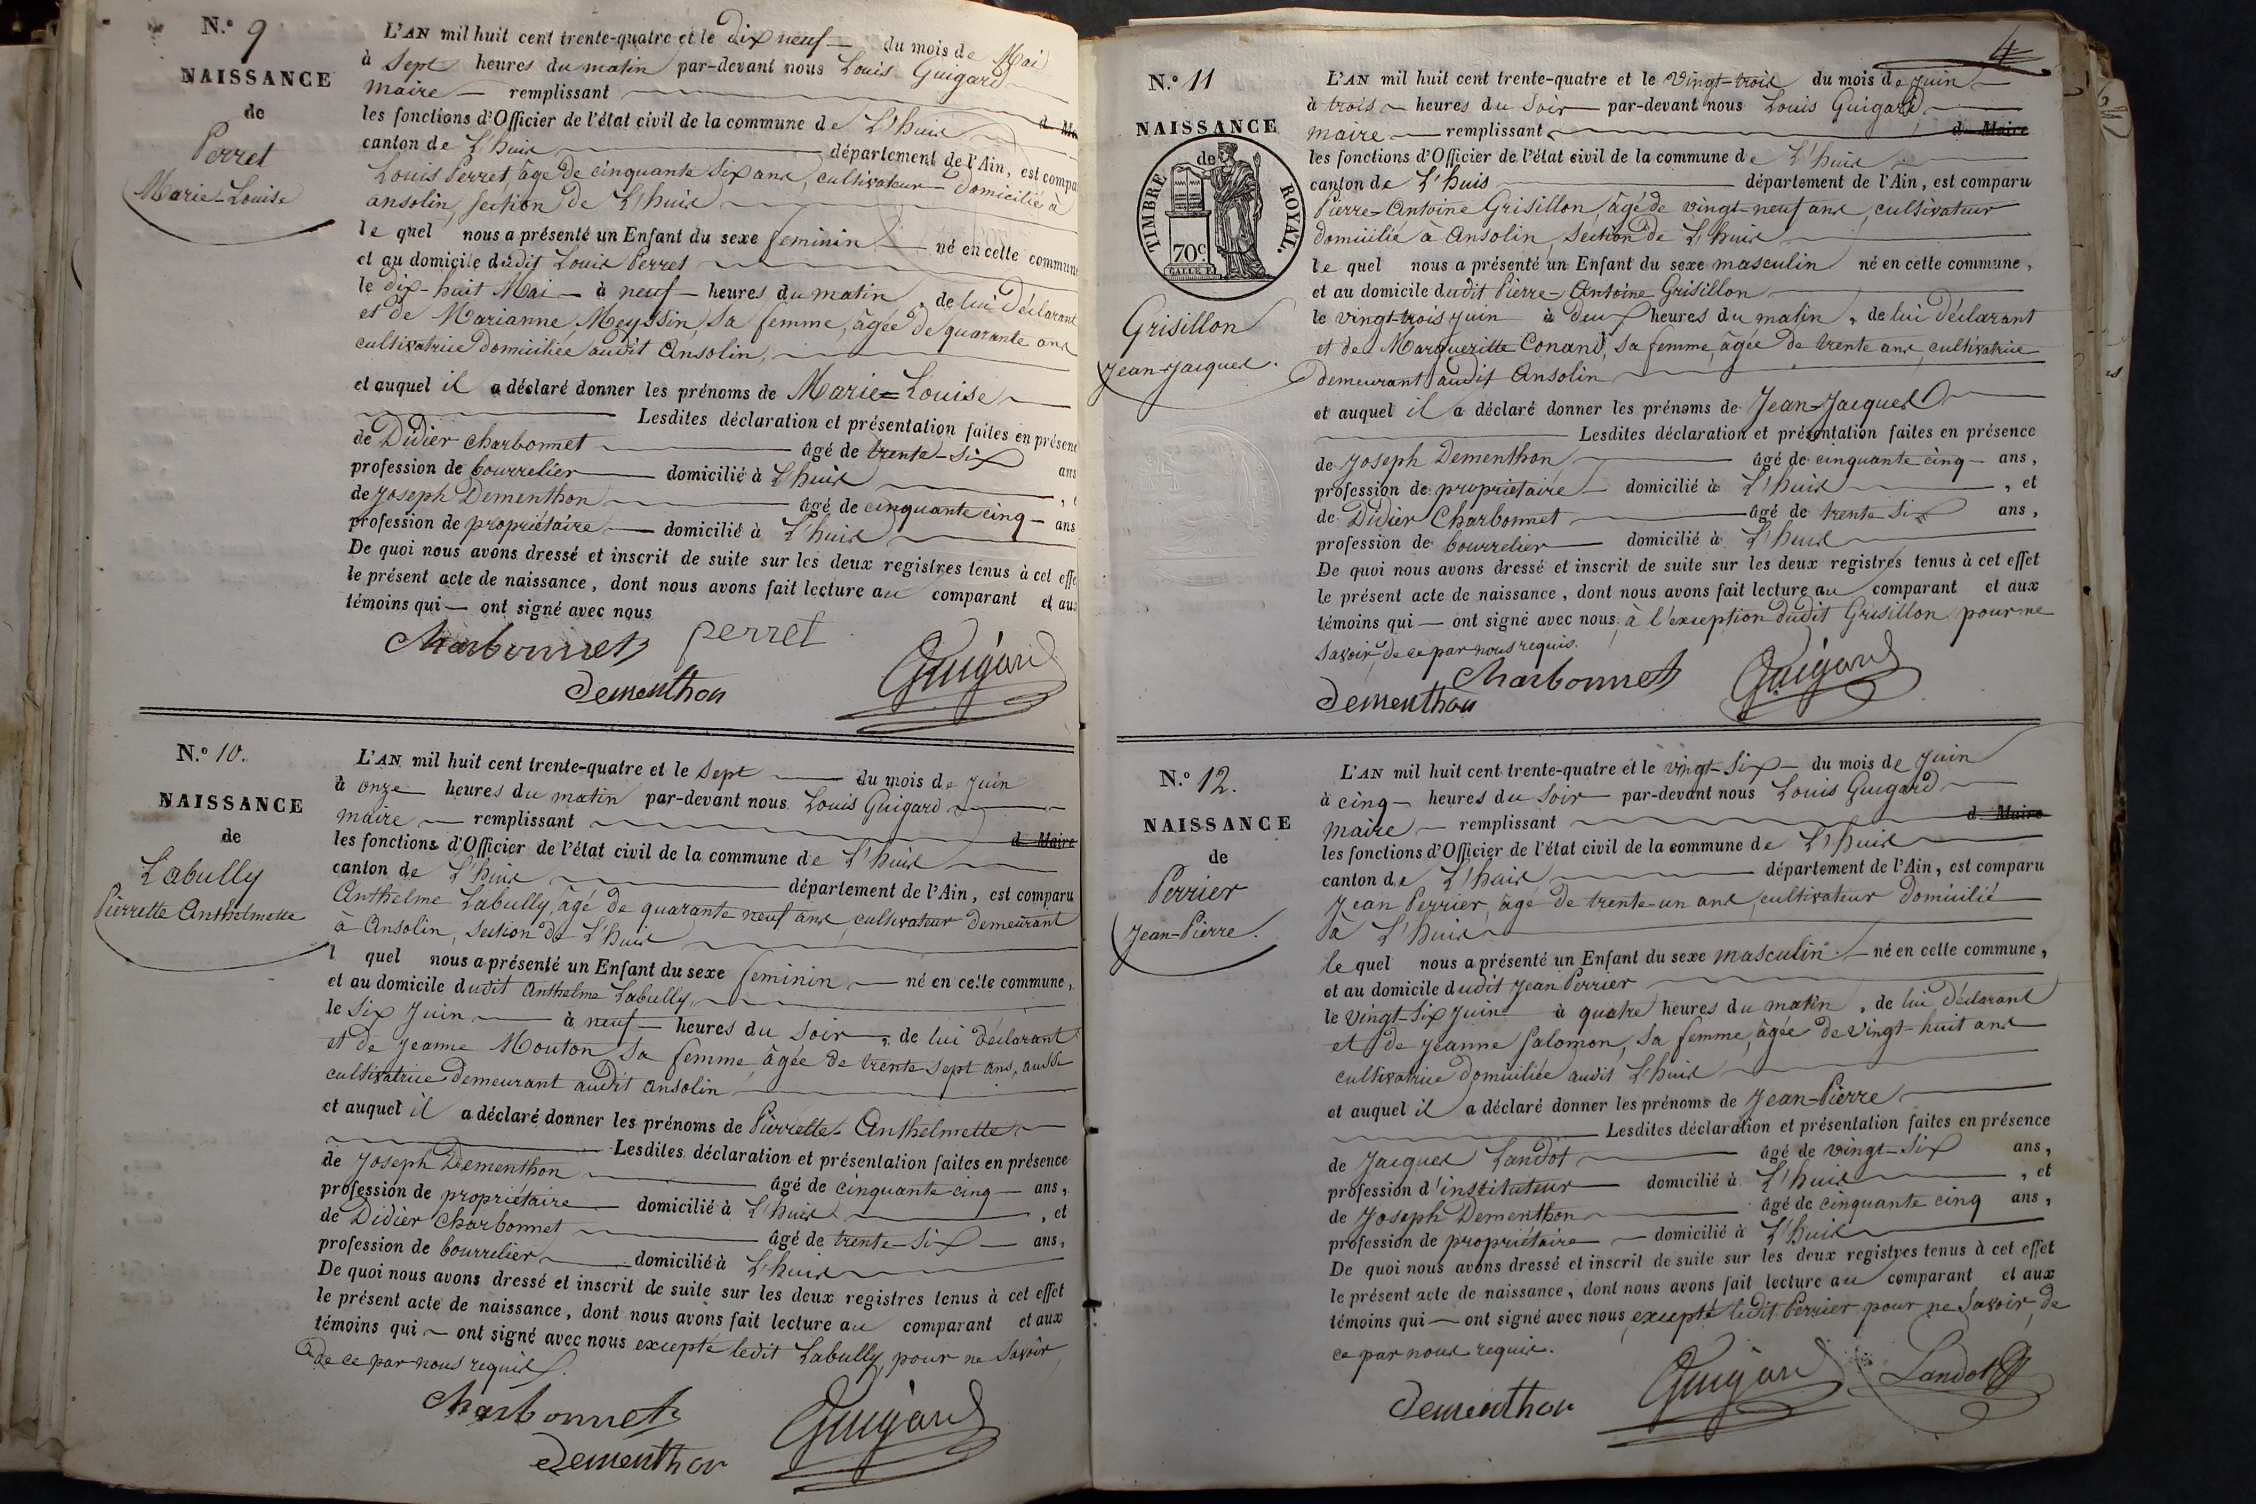 N.º 9
NAISSANCE
de
Perret
Marie-Louise
L'AN mil huit cent trente-quatre et le dix neuf du mois de Mai
à Sept heures du matin par-devant nous Louis Guigard
Maire remplissant d Ma
les fonctions d'Officier de l'état civil de la commune de L'huis
canton de L'huis département de l'Ain, est compa
Louis Perret âgé de cinquante six ans, cultivateur domicilié à
ansolin, section de L'huis
le quel nous a présenté un Enfant du sexe feminin né en cette commune
et au domicile dudit Louis Perret
le dix-huit Mai à neuf heures du matin, de lui déclarant
et de Marianne Meyssin, sa femme, âgée de quarante ans
cultivatrice domiciliée audit Ansolin,
et auquel il a déclaré donner les prénoms de Marie=Louise
Lesdites déclaration et présentation faites en présenc
de Didier Charbonnet âgé de trente-six ans
profession de bourrelier domicilié à L'huis
de Joseph Dementhon âgé de cinquante cinq ans
profession de propriétaire domicilié à L'huis
De quoi nous avons dressé et inscrit de suite sur les deux registres tenus à cet effe
le présent acte de naissance, dont nous avons fait lecture au comparant et aux
témoins qui ont signé avec nous
Charbonnet perret
Dementhon Guigard
N.º 10.
NAISSANCE
de
Labully
Pierrette Anthelmette
L'AN mil huit cent trente-quatre et le Sept du mois de Juin
à onze heures du matin par-devant nous Louis Guigard
Maire remplissant d Maire
les fonctions d'Officier de l'état civil de la commune de L'huis
canton de L'huis département de l'Ain, est comparu
Anthelme Labully, âgé de quarante neuf ans, cultivateur demeurant
à Ansolin, section de L'huis
l quel nous a présenté un Enfant du sexe feminin né en cette commune,
et au domicile dudit Anthelme Labully,
le Six Juin à neuf heures du Soir, de lui déclarant
et de Jeanne Mouton sa femme, âgée de trente sept ans, aussi
cultivatrice demeurant audit ansolin
et auquel il a déclaré donner les prénoms de Pierrette-Anthelmette
Lesdites déclaration et présentation faites en présence
de Joseph Dementhon âgé de cinquante cinq ans,
profession de propriétaire domicilié à L'huis, et
de Didier Charbonnet âgé de trente-six ans,
profession de bourrelier domicilié à L'huis
De quoi nous avons dressé et inscrit de suite sur les deux registres tenus à cet effet
le présent acte de naissance, dont nous avons fait lecture au comparant et aux
témoins qui ont signé avec nous excepté ledit Labully, pour ne Savoir,
de ce par nous requis.
Charbonnet
Dementhon Guigard
4
N.º 11
NAISSANCE
de
TIMBRE ROYAL.
70c
Grisillon
Jean-Jacques.
L'AN mil huit cent trente-quatre et le vingt-trois du mois de Juin
à trois heures du Soir par-devant nous Louis Guigard
maire remplissant d Maire
les fonctions d'Officier de l'état civil de la commune de L'huis
canton de L'huis département de l'Ain, est comparu
Pierre-Antoine Grisillon, âgé de vingt-neuf ans, cultivateur
domicilié à Ansolin, section de L'huis
le quel nous a présenté un Enfant du sexe masculin né en cette commune,
et au domicile dudit Pierre-Antoine Grisillon
le vingt-trois juin à deux heures du matin, de lui déclarant
et de Marguerite Conand, sa femme, âgée de trente ans, cultivatrice
demeurant audit Ansolin
et auquel il a déclaré donner les prénoms de Jean-Jacques
Lesdites déclaration et présentation faites en présence
de Joseph Dementhon âgé de cinquante cinq ans,
profession de propriétaire domicilié à L'huis, et
de Didier Charbonnet âgé de trente Six ans,
profession de bourrelier domicilié à L'huis
De quoi nous avons dressé et inscrit de suite sur les deux registres tenus à cet effet
le présent acte de naissance, dont nous avons fait lecture au comparant et aux
témoins qui ont signé avec nous, à l'exception dudit Grisillon pour ne
Savoir, de ce par nous requis.
Charbonnet Guigard
Dementhon
N.º 12.
NAISSANCE
de
Perrier
Jean-Pierre.
L'AN mil huit cent trente-quatre et le vingt-Six du mois de Juin
à cinq heures du Soir par-devant nous Louis Guigard
maire remplissant d Maire
les fonctions d'Officier de l'état civil de la commune de L'huis
canton de L'huis département de l'Ain, est comparu
Jean Perrier, âgé de trente-un ans, cultivateur domicilié
à L'huis
le quel nous a présenté un Enfant du sexe masculin né en cette commune,
et au domicile dudit Jean Perrier
le vingt-six Juin à quatre heures du matin, de lui déclarant
et de Jeanne Salomon, sa femme, âgée de vingt-huit ans
cultivatrice domiciliée audit L'huis
et auquel il a déclaré donner les prénoms de Jean-Pierre
Lesdites déclaration et présentation faites en présence
de Jacques Landot âgé de vingt-Six ans,
profession d'instituteur domicilié à L'huis, et
de Joseph Dementhon âgé de cinquante cinq ans,
profession de propriétaire domicilié à L'huis
De quoi nous avons dressé et inscrit de suite sur les deux registres tenus à cet effet
le présent acte de naissance, dont nous avons fait lecture au comparant et aux
témoins qui ont signé avec nous, excepté ledit Perrier pour ne Savoir, de
ce par nous requis.
Dementhon Guigard Landot